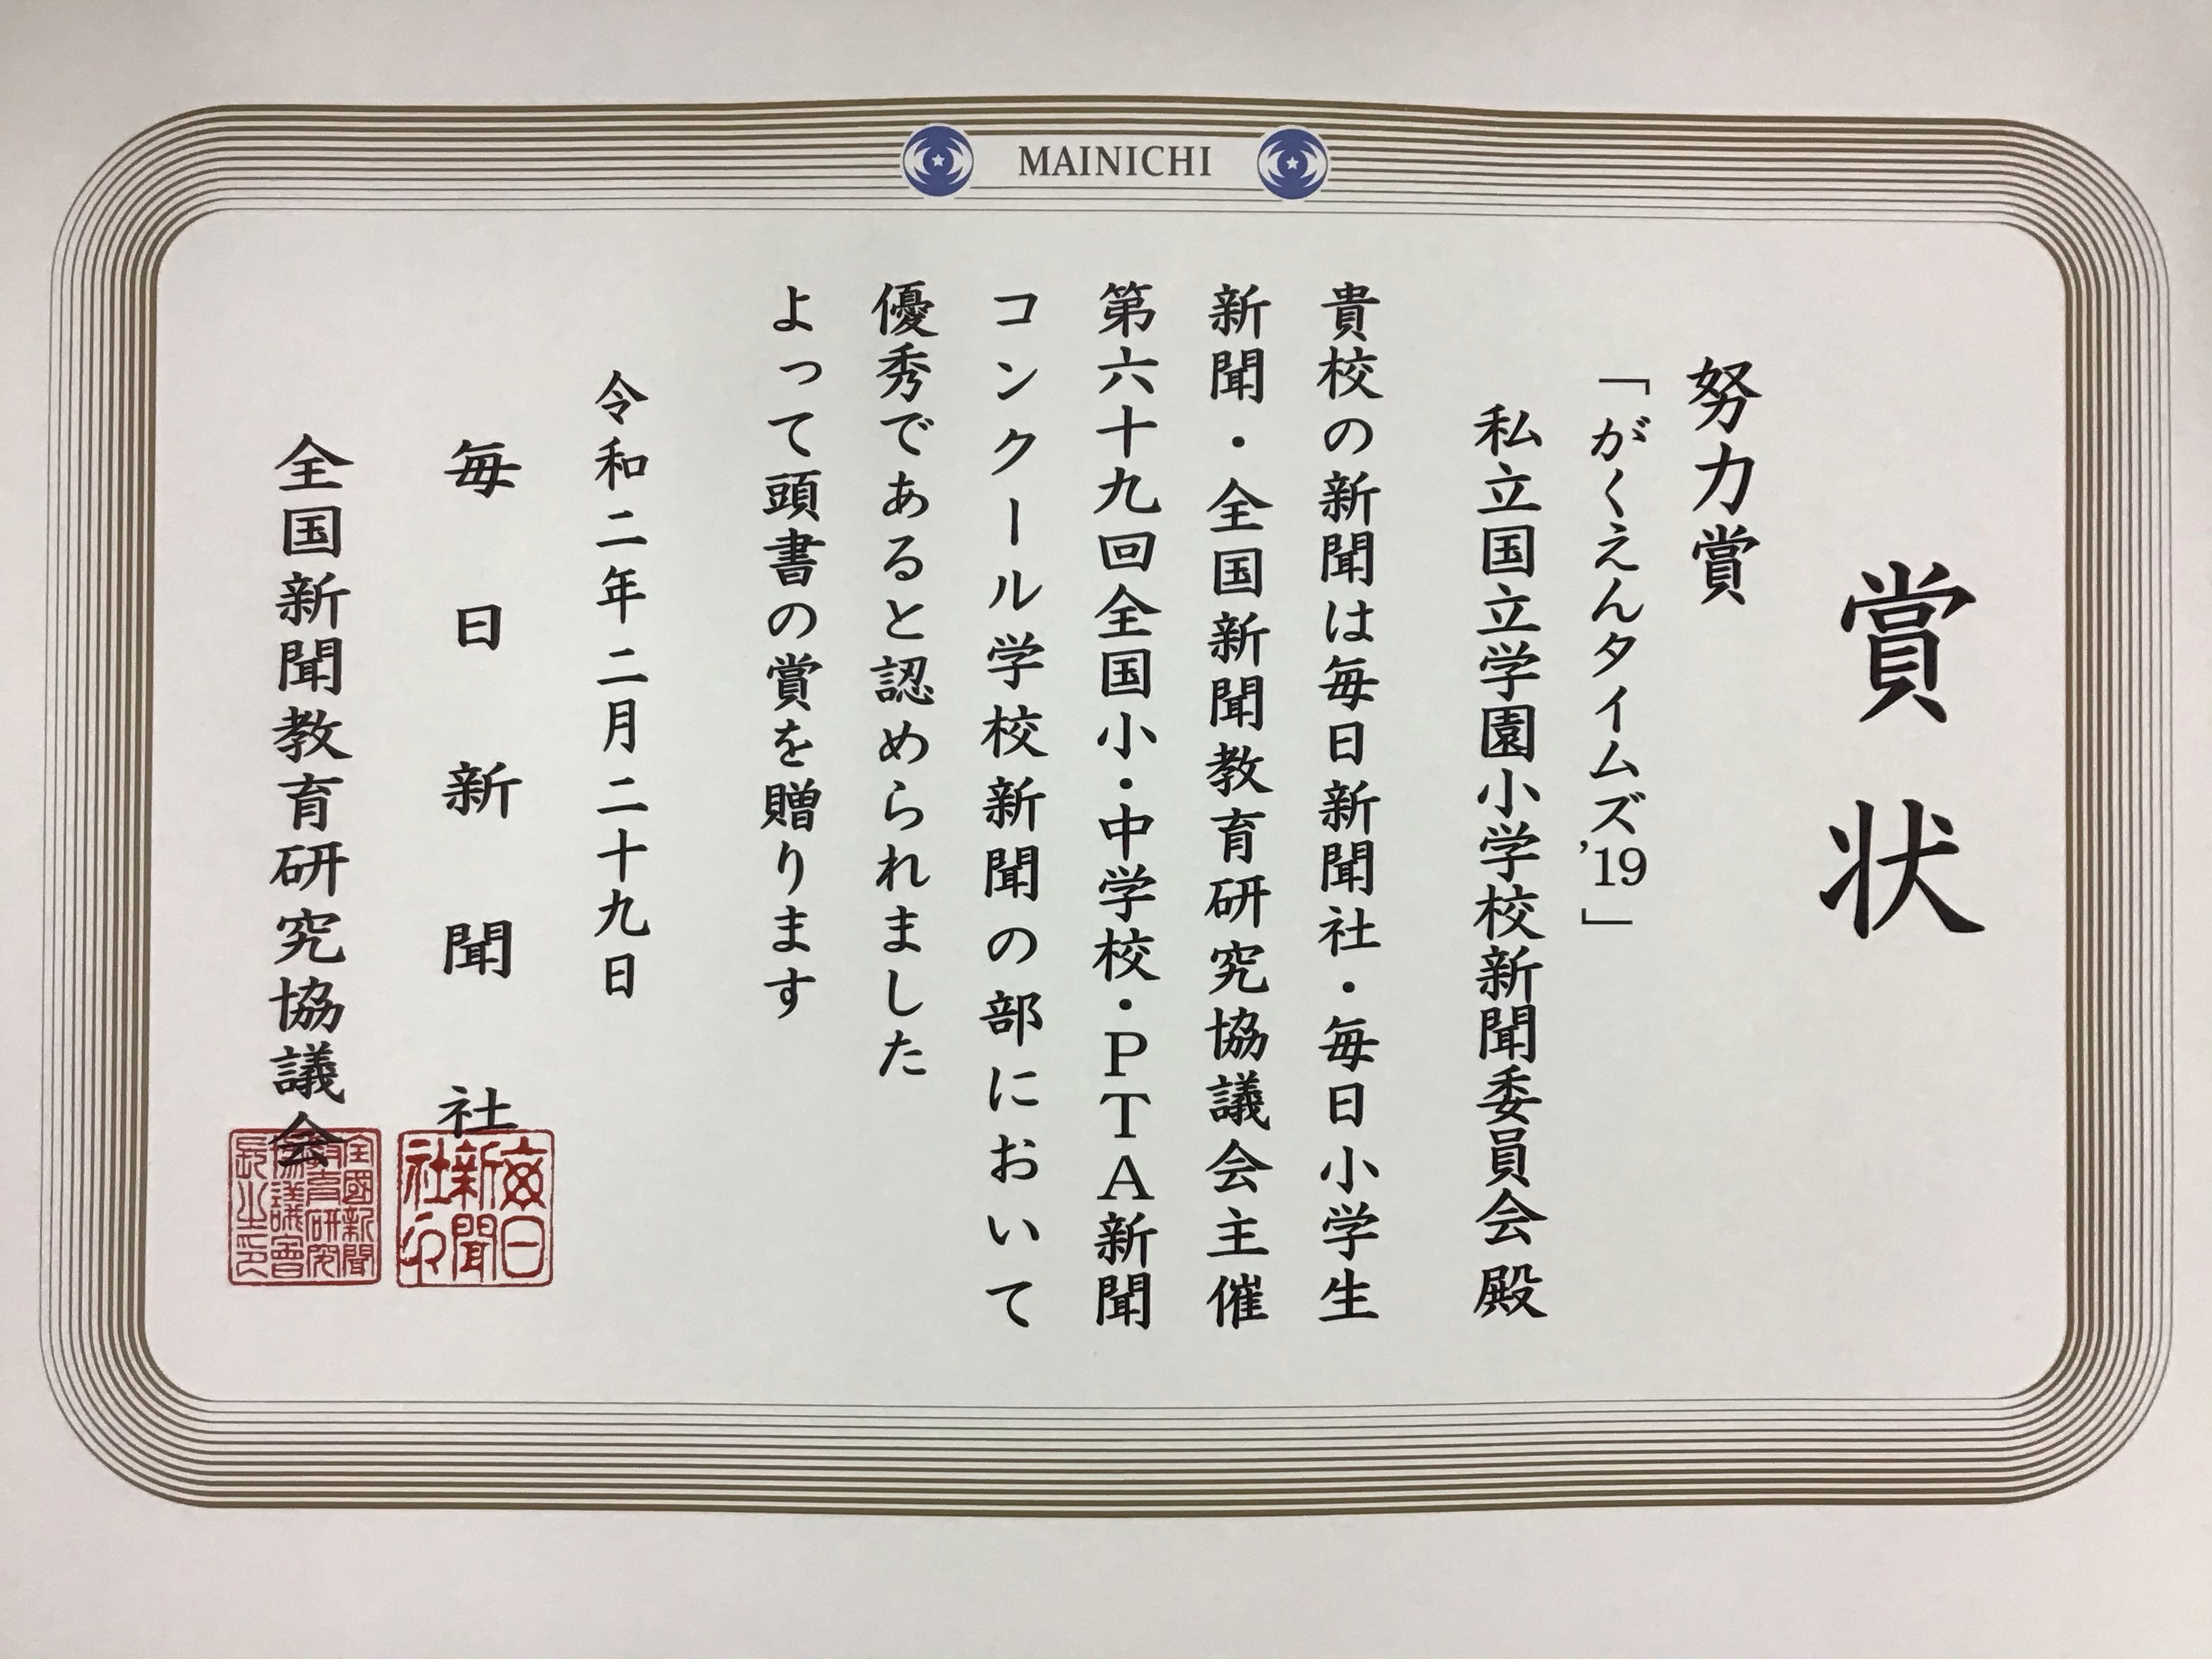 MAINICHI
賞状
努力賞
「がくえんタイムズ’19」
私立国立学園小学校新聞委員会殿
貴校の新聞は毎日新聞社・毎日小学生
新聞・全国新聞教育研究協議会主催
第六十九回全国小・中学校・PTA新聞
コンクール学校新聞の部において
優秀であると認められました
よって頭書の賞を贈ります
令和二年二月二十九日
毎日新聞社
毎日
新聞
社印
全国新聞教育研究協議会
全國新聞
教育研究
協議會
長之印